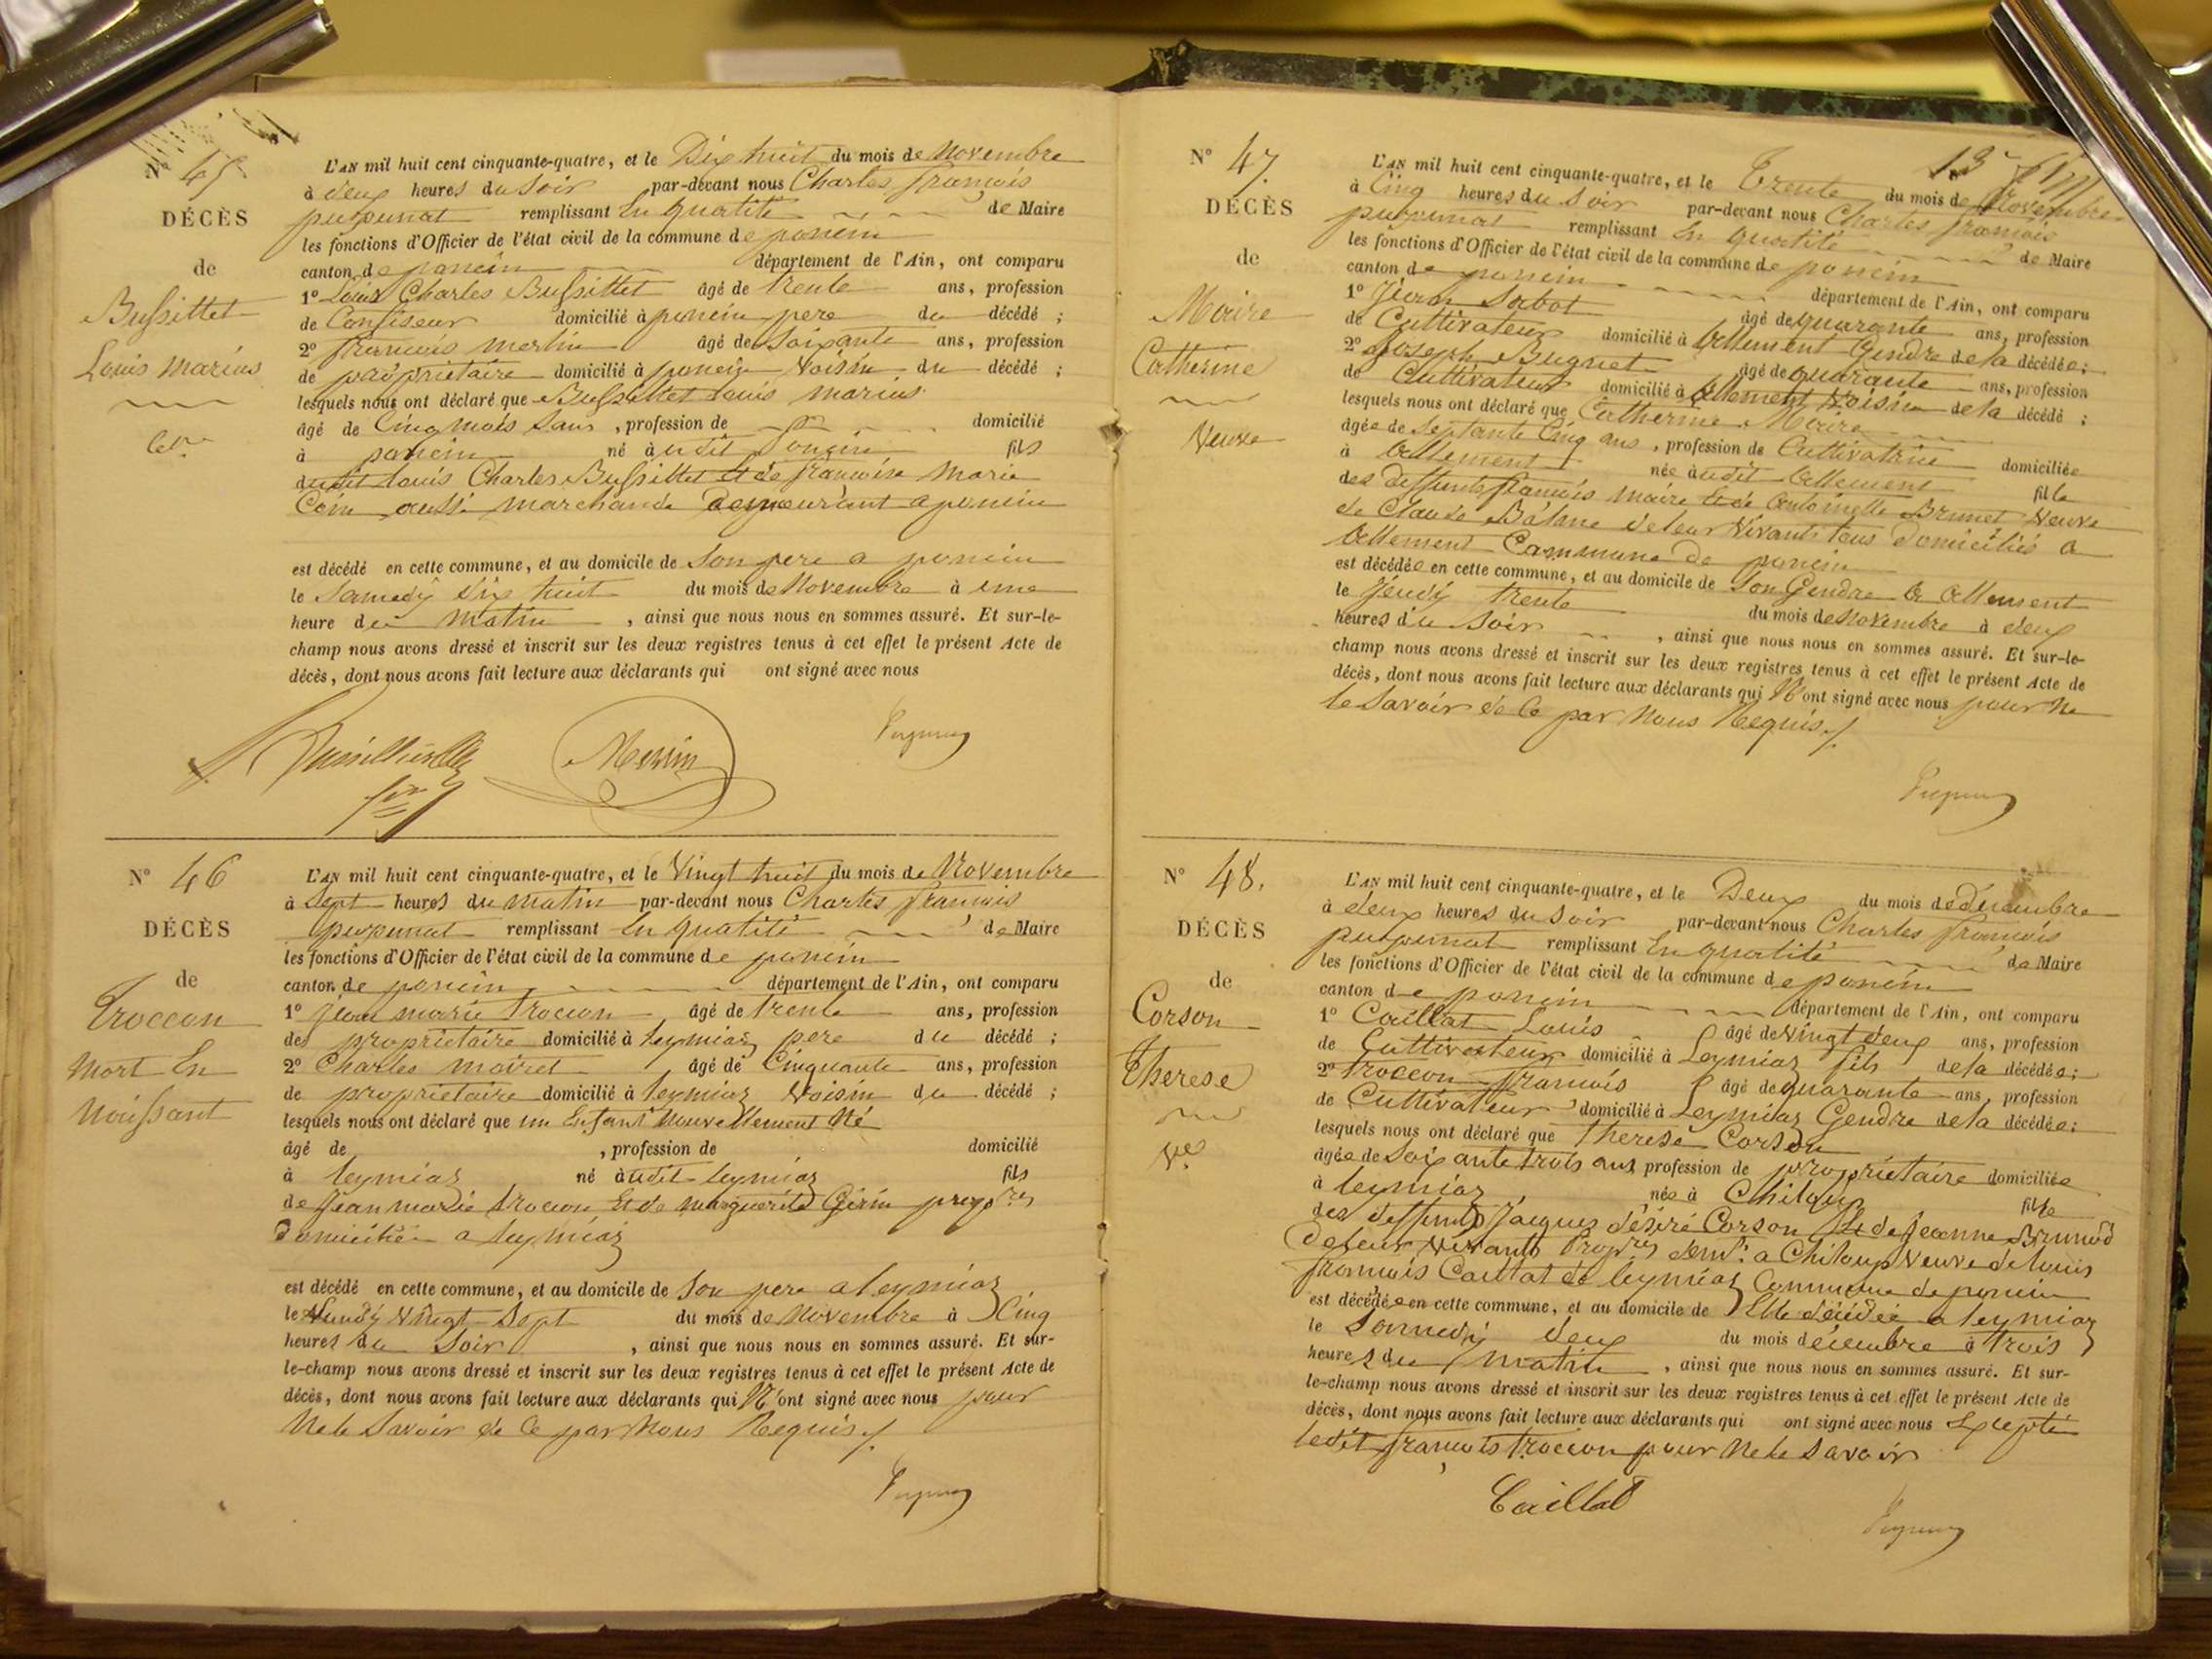 N° 45
DÉCÈS
de
Bussittet
Louis Marius
L'AN mil huit cent cinquante-quatre, et le Dix huit du mois de Novembre
à deux heures du Soir par-devant nous Charles françois
puepunat remplissant En qualité de Maire
les fonctions d'Officier de l'état civil de la commune de poncin
canton de poncin département de l'Ain, ont comparu
1° Louis Charles Bussittet âgé de trente ans, profession
de Confiseur domicilié à poncin pere du décédé ;
2° francois merlin âgé de Soixante ans, profession
de propriétaire domicilié à poncin Voisin du décédé ;
lesquels nous ont déclaré que Bussittet Louis marius
âgé de Cinq mois Sans , profession de domicilié
à poncin né audit Poncin fils
dudit Louis Charles Bussittet Et de francoise Marie
aussi marchande Demeurant a poncin
est décédé en cette commune, et au domicile de Son pere a poncin
le Samedy dix huit du mois de Novembre à une
heure du matin , ainsi que nous nous en sommes assuré. Et sur-le-
champ nous avons dressé et inscrit sur les deux registres tenus à cet effet le présent Acte de
décès, dont nous avons fait lecture aux déclarants qui ont signé avec nous
N° 46
DÉCÈS
de
Troccon
Mort En
Noissant
L'AN mil huit cent cinquante-quatre, et le Vingt huit du mois de Novembre
à Sept heures du matin par-devant nous Charles francois
puepunat remplissant En qualité de Maire
les fonctions d'Officier de l'état civil de la commune de poncin
canton de poncin département de l'Ain, ont comparu
1° Jean marie troccon âgé de trente ans, profession
de propriétaire domicilié à leymiaz pere du décédé ;
2° Charles moiret âgé de Cinquante ans, profession
de propriétaire domicilié à leymiaz Voisin du décédé ;
lesquels nous ont déclaré que un Enfant Nouvellement Né
âgé de , profession de domicilié
à leymiaz né audit leymiaz fils
de Jean marie troccon Et de marguerite Girin prop.res
Domiciliés a leymiaz
est décédé en cette commune, et au domicile de Son pere a leymiaz
le Lundy Vingt Sept du mois de Novembre à Cinq
heures du Soir , ainsi que nous nous en sommes assuré. Et sur-
le-champ nous avons dressé et inscrit sur les deux registres tenus à cet effet le présent Acte de
décès, dont nous avons fait lecture aux déclarants qui N'ont signé avec nous pour
Ne le Savoir de Ce par Nous Requis
N° 47
DÉCÈS
de
Moire
Catherine
Veuve
L'AN mil huit cent cinquante-quatre, et le Trente du mois de Novembre
à Cinq heures du Soir par-devant nous Charles francois
puepunat remplissant En qualité de Maire
les fonctions d'Officier de l'état civil de la commune de poncin
canton de poncin département de l'Ain, ont comparu
1° Jean Sabot âgé de quarante ans, profession
de Cultivateur domicilié à allement Gendre de la décédée ;
2° Joseph Buguet âgé de quarante ans, profession
de Cultivateur domicilié à allement Voisin de la décédé ;
lesquels nous ont déclaré que Catherine Moire
âgée de Septante Cinq ans , profession de Cultivatrice domiciliée
à allement née audit allement fille
des deffunts francois moire Et de antoinette Brunet Veuve
de Claude Balme de leur Vivants tous Domiciliés a
allement Commune de poncin
est décédée en cette commune, et au domicile de Son Gendre a allement
le Jeudy trente du mois de Novembre à deux
heures du Soir , ainsi que nous nous en sommes assuré. Et sur-le-
champ nous avons dressé et inscrit sur les deux registres tenus à cet effet le présent Acte de
décès, dont nous avons fait lecture aux déclarants qui N'ont signé avec nous pour Ne
le Savoir de Ce par Nous Requis
N° 48.
DÉCÈS
de
Corson
Therese
Ve
L'AN mil huit cent cinquante-quatre, et le Deux du mois de décembre
à deux heures du Soir par-devant nous Charles francois
puepunat remplissant En qualité de Maire
les fonctions d'Officier de l'état civil de la commune de poncin
canton de poncin département de l'Ain, ont comparu
1° Caillat Louis âgé de Vingt deux ans, profession
de Cultivateur domicilié à Leymiaz fils de la décédée ;
2° troccon francois âgé de quarante ans, profession
de Cultivateur domicilié à Leymiaz Gendre de la décédée ;
lesquels nous ont déclaré que therese Corson
âgée de Soixante trois ans profession de propriétaire domiciliée
à leymiaz née à Chiloup fille
des deffunts Jacques désiré Corson Et de Jeanne Brunod
de leur Vivants Prop.res dem.t a Chiloup Veuve de louis
francois Caillat de leymiaz Commune de poncin
est décédée en cette commune, et au domicile de Elle décédée a leymiaz
le Samedy deux du mois décembre à trois
heures du matin , ainsi que nous nous en sommes assuré. Et sur-
le-champ nous avons dressé et inscrit sur les deux registres tenus à cet effet le présent Acte de
décès, dont nous avons fait lecture aux déclarants qui ont signé avec nous Excepté
ledit francois troccon pour Ne le Savoir
Caillat